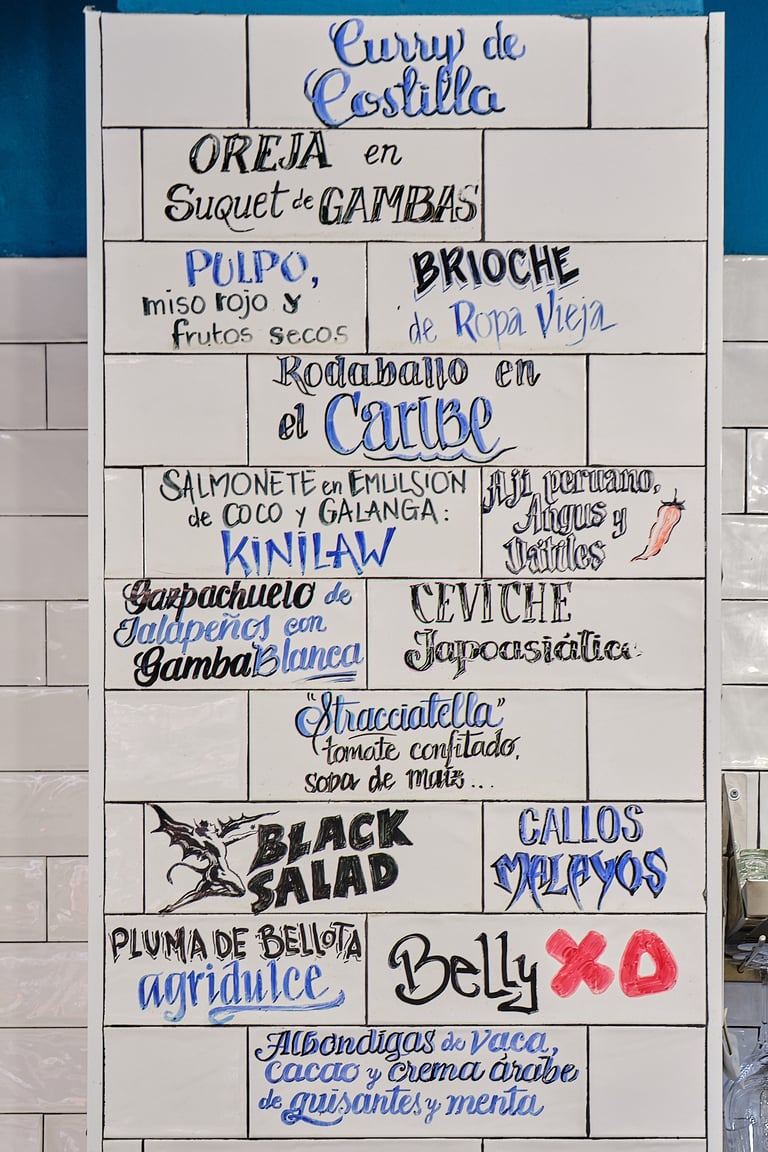 Curry de
Costilla
OREJA en
Suquet de GAMBAS
PULPO,
miso rojo y
frutos secos
BRIOCHE
de Ropa Vieja
Rodaballo en
el Caribe
SALMONETE en EMULSIÓN
de COCO y GALANGA:
KINILAW
Ají peruano,
Angus y
Dátiles
Gazpachuelo de
Jalapeños con
Gamba Blanca
CEVICHE
Japoasiático
"Stracciatella"
tomate confitado,
sopa de maíz...
BLACK
SALAD
CALLOS
MALAYOS
PLUMA DE BELLOTA
agridulce
Belly XO
Albóndigas de Vaca,
cacao y crema árabe
de guisantes y menta